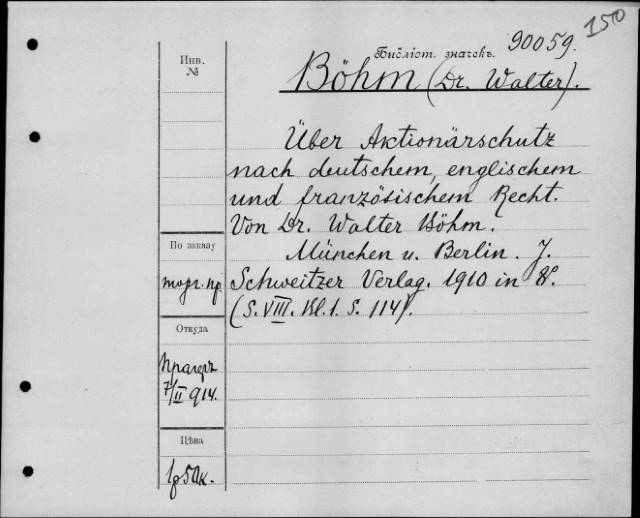 150
Библіот. значекъ. 90059.
Инв. №
Böhm (Dr. Walter).
Über Aktionärschutz
nach deutschem, englischem
und französischem Recht.
Von Dr. Walter Böhm.
München u. Berlin. J.
Schweitzer Verlag. 1910 in 8°.
(S. VIII. Bl. 1. S. 114).
По заказу
торг. пр.
Откуда
Прагеръ
7/II 914.
Цѣна
1р50к.